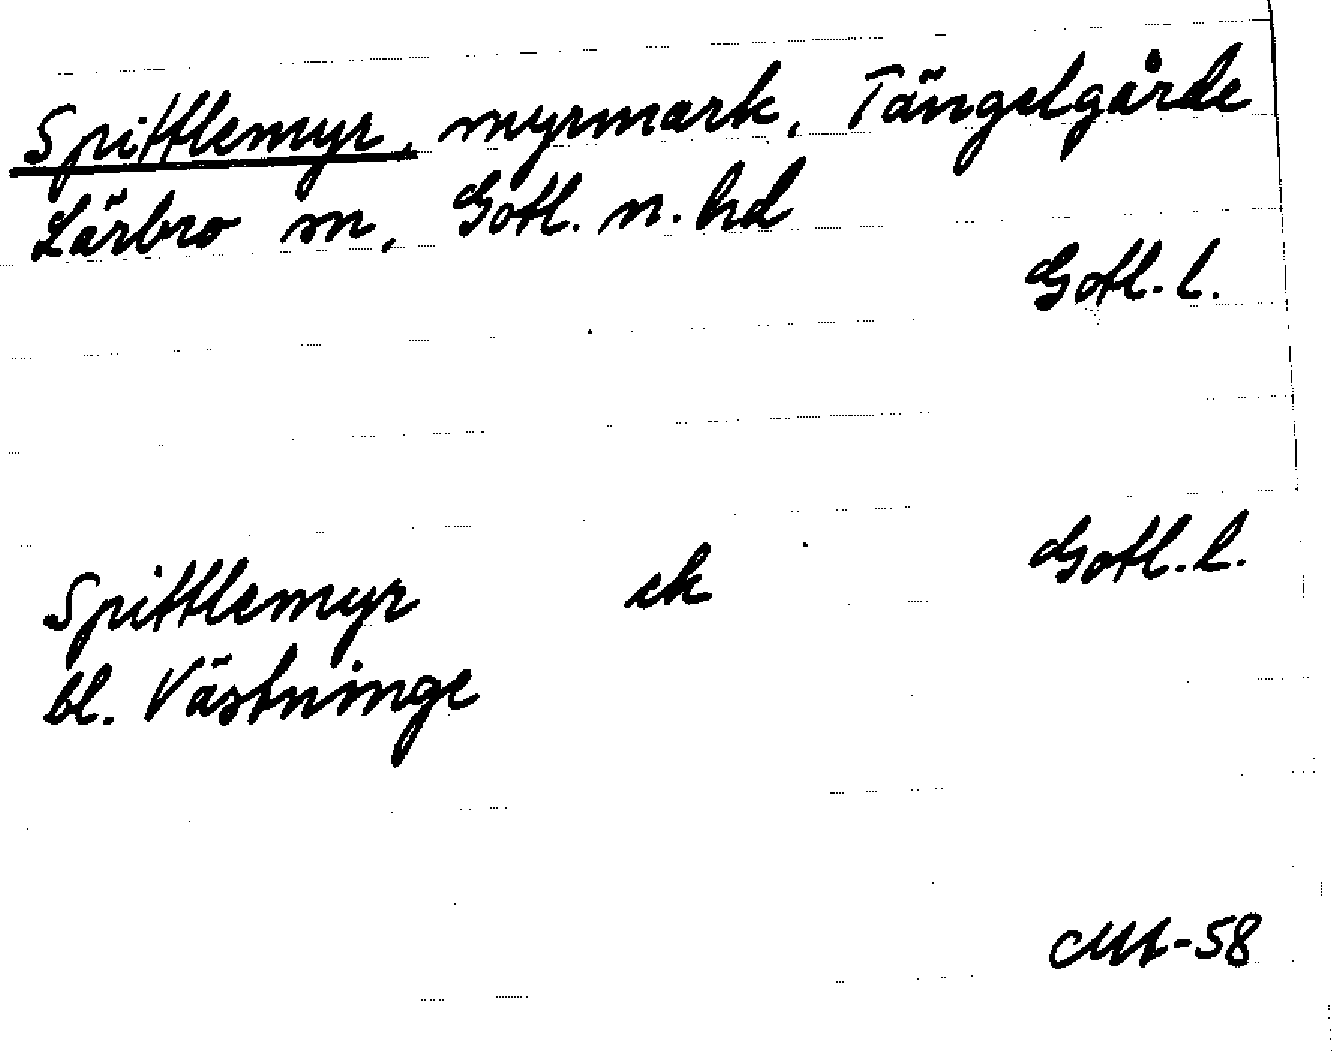 Spittlemyr, myrmark, Tängelgårde
Lärbro sn, Gotl. n. hd
Gotl. l.
Spittlemyr ek Gotl. l.
bl. Västninge
-58